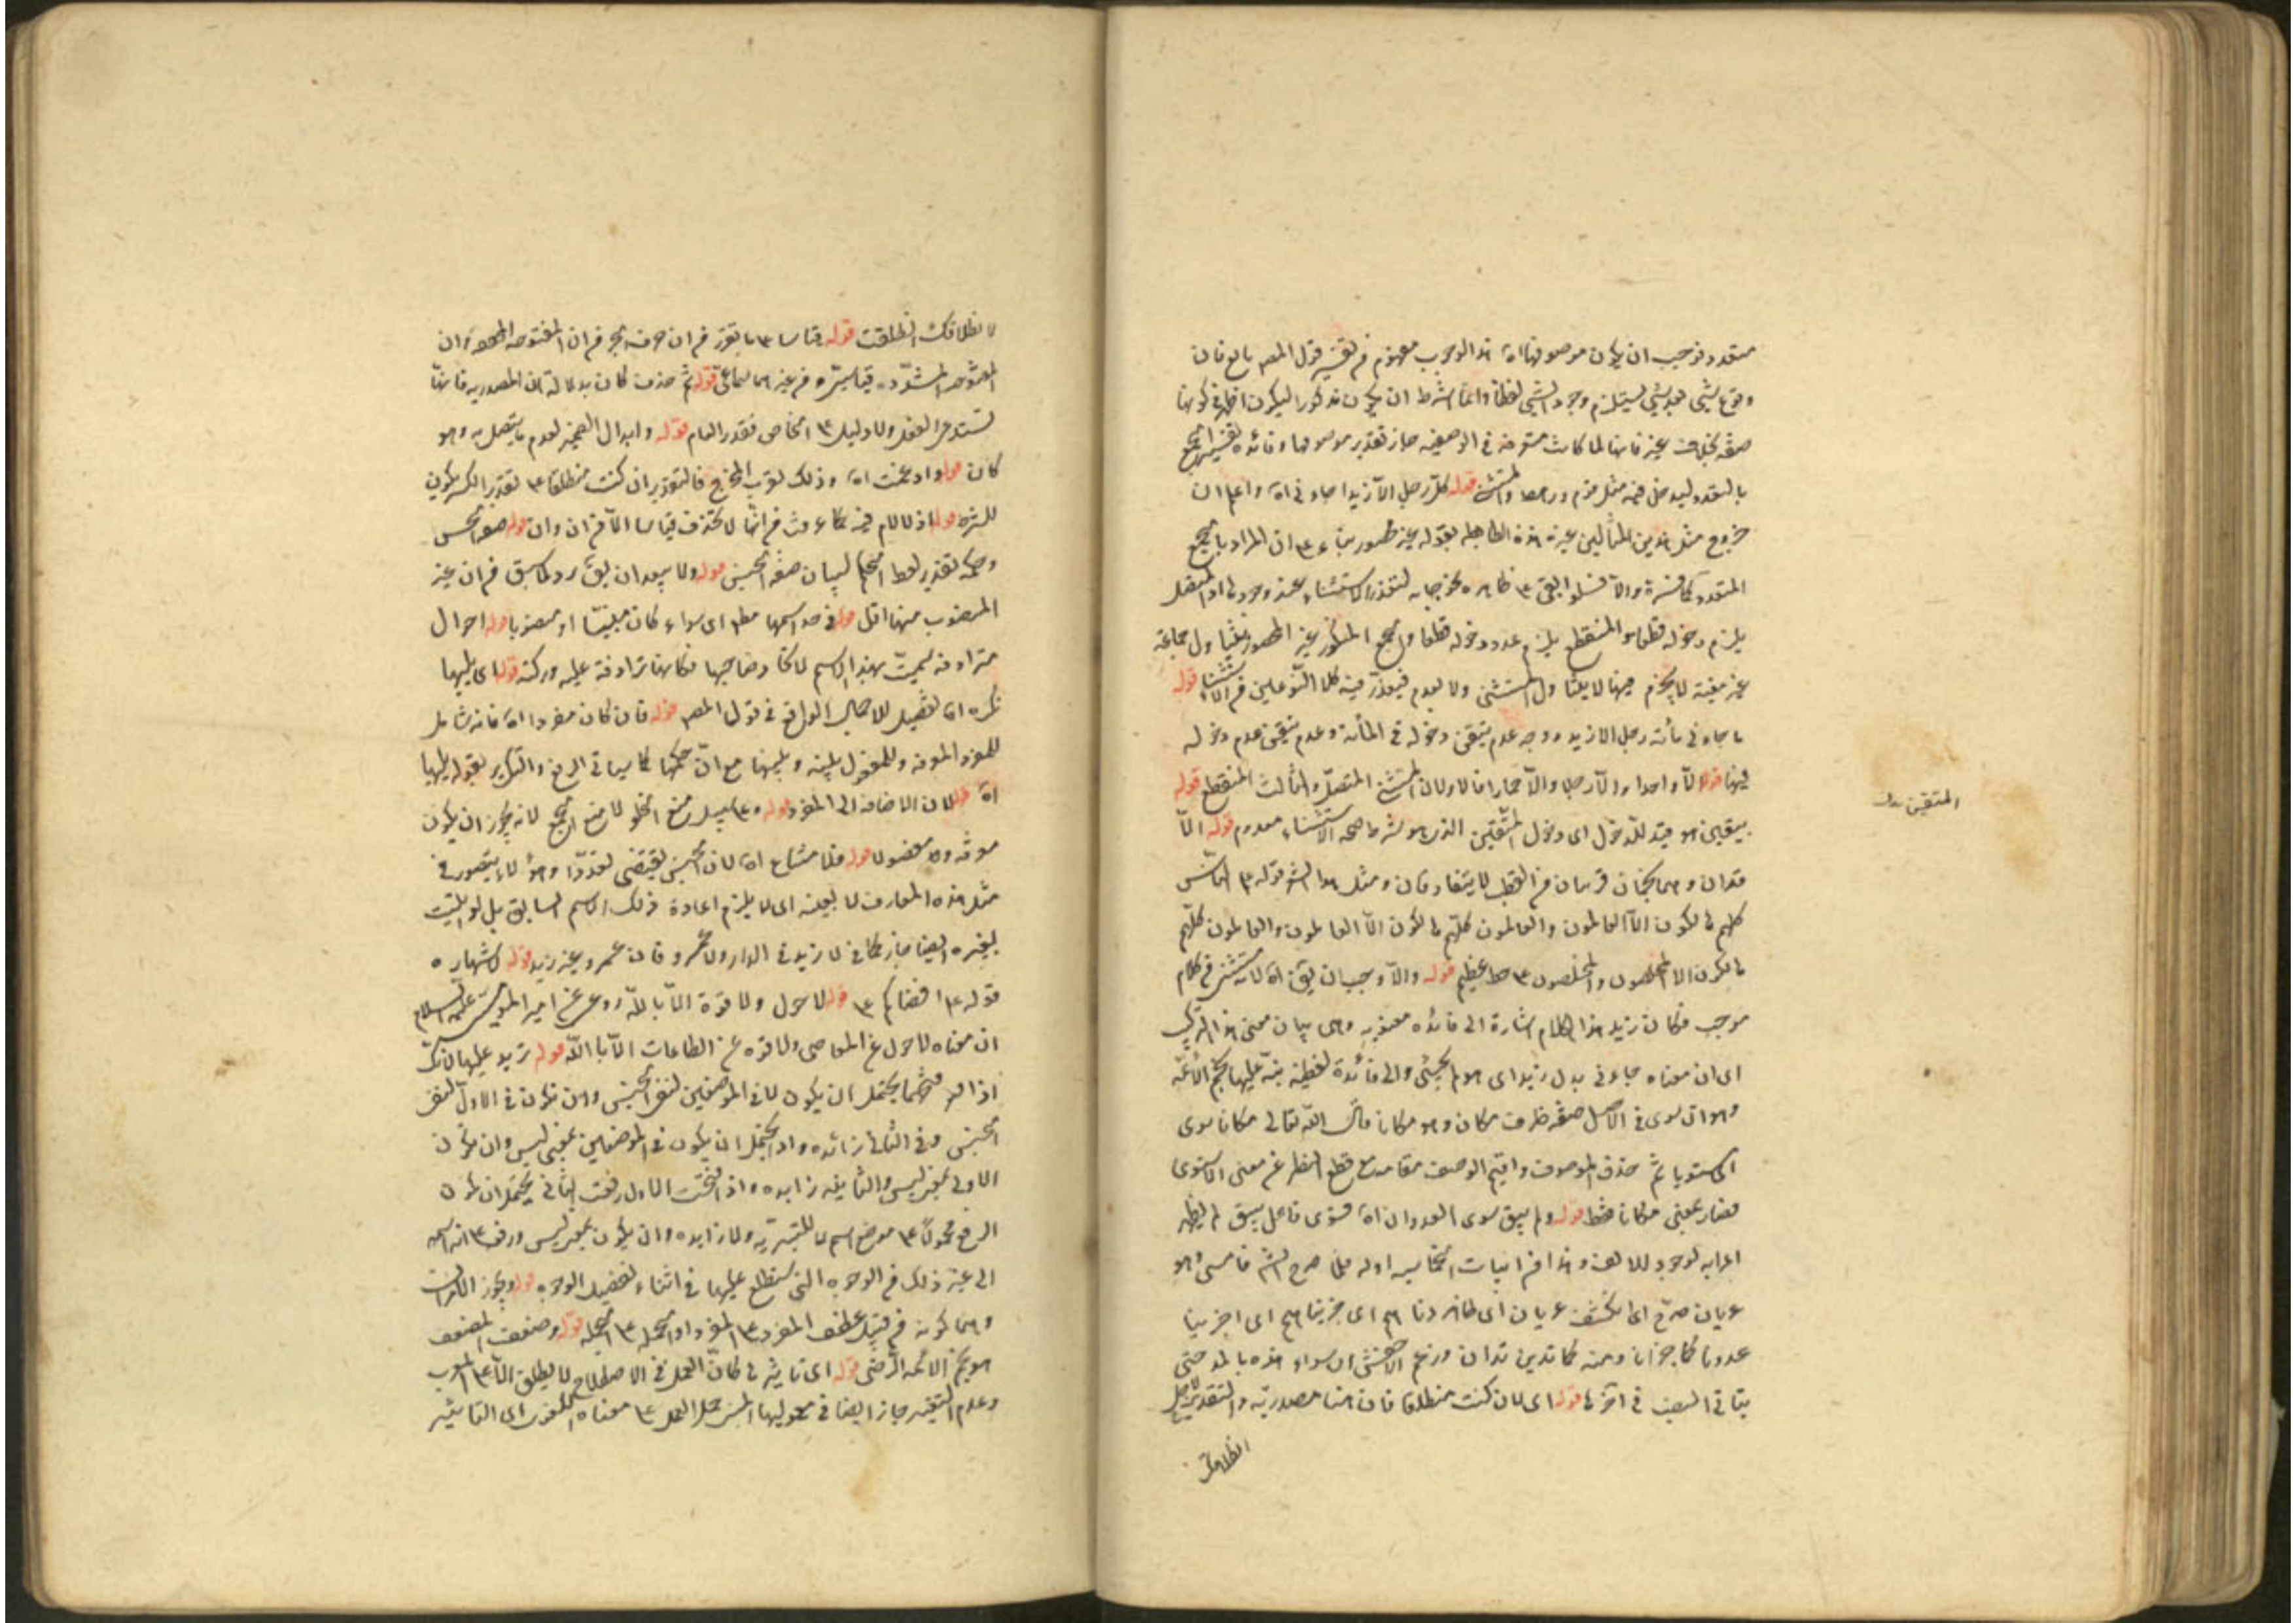 متعدد فوجب ان يكون موصوفها اه هذا الوجوب مفهوم من تفسير قول المصر تابع فان
وقوع شيء بعد شيء يستلزم وجود الشيء لفظا وانما اشترط ان يكون مذكورا ليكون اظهر في كونها
صفة بخلاف غير فانها لما كانت متوغلة في الوصفية جاز تقدير موصوفها وفائدة تفسير الجمع
بالمتعدد ليدخل فيه مثل قوم ورهط والمستثنى قوله كل رجل الا زيدا جاءني اه واعلم ان
خروج مثل هذين المثالين عن هذه القاعدة بقوله غير محصور بناء على ان المراد بالجمع
المتعدد كما فسره والا فلو ابقى على ظاهره لخرجا به لتعذر الاستثناء عند وجود
يلزم دخوله قطعا والمنقطع يلزم عدم دخوله قطعا والجمع المنكور غير المحصور يتناول جماعة
غير معينة لا يجزم فيها لا بتناول المستثنى ولا بعدم فيتعذر فيه كلا النوعين من الاستثناء قوله
ما جاءني مائة رجل الا زيد ووجه عدم تيقن دخوله في المائة وعدم تيقن عدم دخوله
فيها قوله الا واحدا او الا رجلا والا حمارا فالاولان المستثنى المتصل والثالث المنقطع قوله
بيقين هو قيد للدخول اى دخول المتقين الذى هو شرط صحة الاستثناء معدوم قوله الا
المتقين بدل
فرقدان وهما نجمان قريبان من القطب لا يتفارقان ومثل هذا الشعر قوله ع الناس
كلهم هالكون الا العالمون والعالمون كلهم هالكون الا العاملون والعاملون كلهم
هالكون الا المخلصون والمخلصون على خطر عظيم قوله والا وجب ان يق اه لانه مستثنى في كلام
موجب فكان زيد هذا الكلام اشارة الى فائدة معنوية وهى بيان معنى هذا التركيب
اى ان معناه جاءنى بدل زيد اى هو لم يجئ والى فائدة لفظية نبه عليها نجم الائمة
وهو ان سوى في الاصل صفة ظرف مكان وهو مكانا قال الله تعالى مكانا سوى
اى مستويا ثم حذف الموصوف واقيم الوصف مقامه مع قطع النظر عن معنى الاستوى
فصار بمعنى مكانا فقط قوله ولم يبق سوى العدوان اه فسوى فاعل يبق لم يظهر
اعرابه لوجود الالف وهذا من ابيات الحماسة اوله فلما صرح الشر فامسى وهو
عريان صرح اى انكشف عريان اى ظاهر دناهم اى جزيناهم اى اجزينا
عدونا كما جزانا ومنه كما تدين تدان وزعم الاخفش ان سواء هذه بالمد حتى
يتأتى النصب في آخرها قوله اى لان كنت منطلقا فان هنا مصدرية والتقدير
انطلاقك
لانطلاقك انطلقت قوله قياسا على ما تقرر من ان حرف الجر من ان المفتوحة المخففة وان
المفتوحة المشددة قياسى ومن غيرهما سماعى قوله ثم حذف كان بدلالة ان المصدرية فانها
تستدعى الفعل ولا دليل على الخاص فقدر العام قوله وابدال الضمير لعدم ما يتصل به وهو
كان قوله وادغمت اه وذلك لقرب المخرج فالتقدير ان كنت منطلقا على تقدير الكسر يكون
للشرط قوله اذ لا لام فيه كما عرفت من انها لا تحذف قياسا الا من ان وان قوله صفة الجنس
وحكمه تقدير لفظ الحكم لبيان صفة الجنس قوله ولا يبعد ان يق يرد كما سبق من ان غير
المنصوب منها اقل قوله في حد اسمها مطلقا اى سواء كان مبنيا او منصوبا قوله احوال
مترادفة سميت بهذا الاسم لاتحاد صاحبها فكانها ترادفت عليه وركبته قوله اى يليها
نكرة اه تفصيل للاجمال الواقع في قول المصر قوله فان كان مفردا اه فانه شامل
للمفرد المعرفة وللمفصول بينه وبينها مع ان حكمهما كما سيأتى الرفع والتكرير بقوله يليها
اه قوله لان الاضافة الى المفرد قوله وعلى سبيل منع الخلو لا منع الجمع لانه يجوز ان يكون
معرفة ومفصولا قوله فلامتناع اه لان الجنس يقتضى تعددا وهو لا يتصور في
مثل هذه المعارف لا بعينه اى لا يلزم اعادة ذلك الاسم السابق بل لو اتيت
بغيره ايضا جاز كما في لا زيد في الدار ولا عمرو فان عمرو غير زيد قوله لاشتهاره
قوله ع اقضاكم على قوله لا حول ولا قوة الا بالله روى عن امير المؤمنين عليه السلام
ان معناه لا حول عن المعاصى ولا قوة على الطاعات الا بالله قوله تزيد عليها لانك
اذا فتحتهما يحتمل ان يكون لا في الموضعين لنفى الجنس وان تكون في الاول لنفى
الجنس وفي الثانى زائدة يحتمل ان يكون في الموضعين بمعنى ليس وان تكون
الاولى بمعنى ليس والثانية زايدة واذا فتحت الاول ورفعت الثانى يحتمل ان يكون
الرفع محمولا على موضع اسم لا للتبرئة ولا زايدة وان يكون بمعنى ليس ورفعه على انه اسمه
الى غير ذلك من الوجوه التى ستطلع عليها في اثناء تفصيل الوجوه قوله ويجوز الامران
وهما كونه من قبيل عطف المفرد على المفرد او الجملة على الجملة قوله وضعف المضعف
هو نجم الائمة الرضى قوله اى تاثير لا كان العمل في الاصطلاح لا يطلق الا على المعرب
وعدم التغيير جاز ايضا في معموليها المبنى حمل العمل على معناه اللغوى اى التاثير